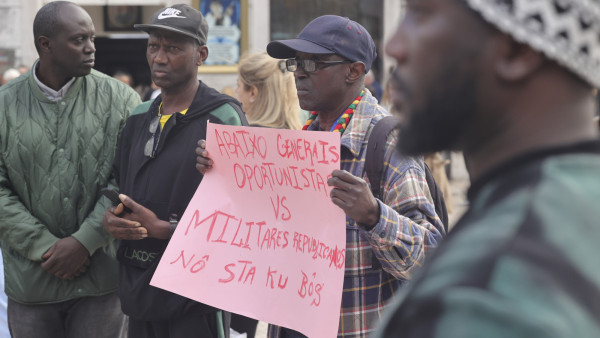 ABAIXO GENERAIS
OPORTUNISTA
VS
MILITARES REPUBLICANOS
NÔ STA KU BÔS
NIKE
LACOSTE